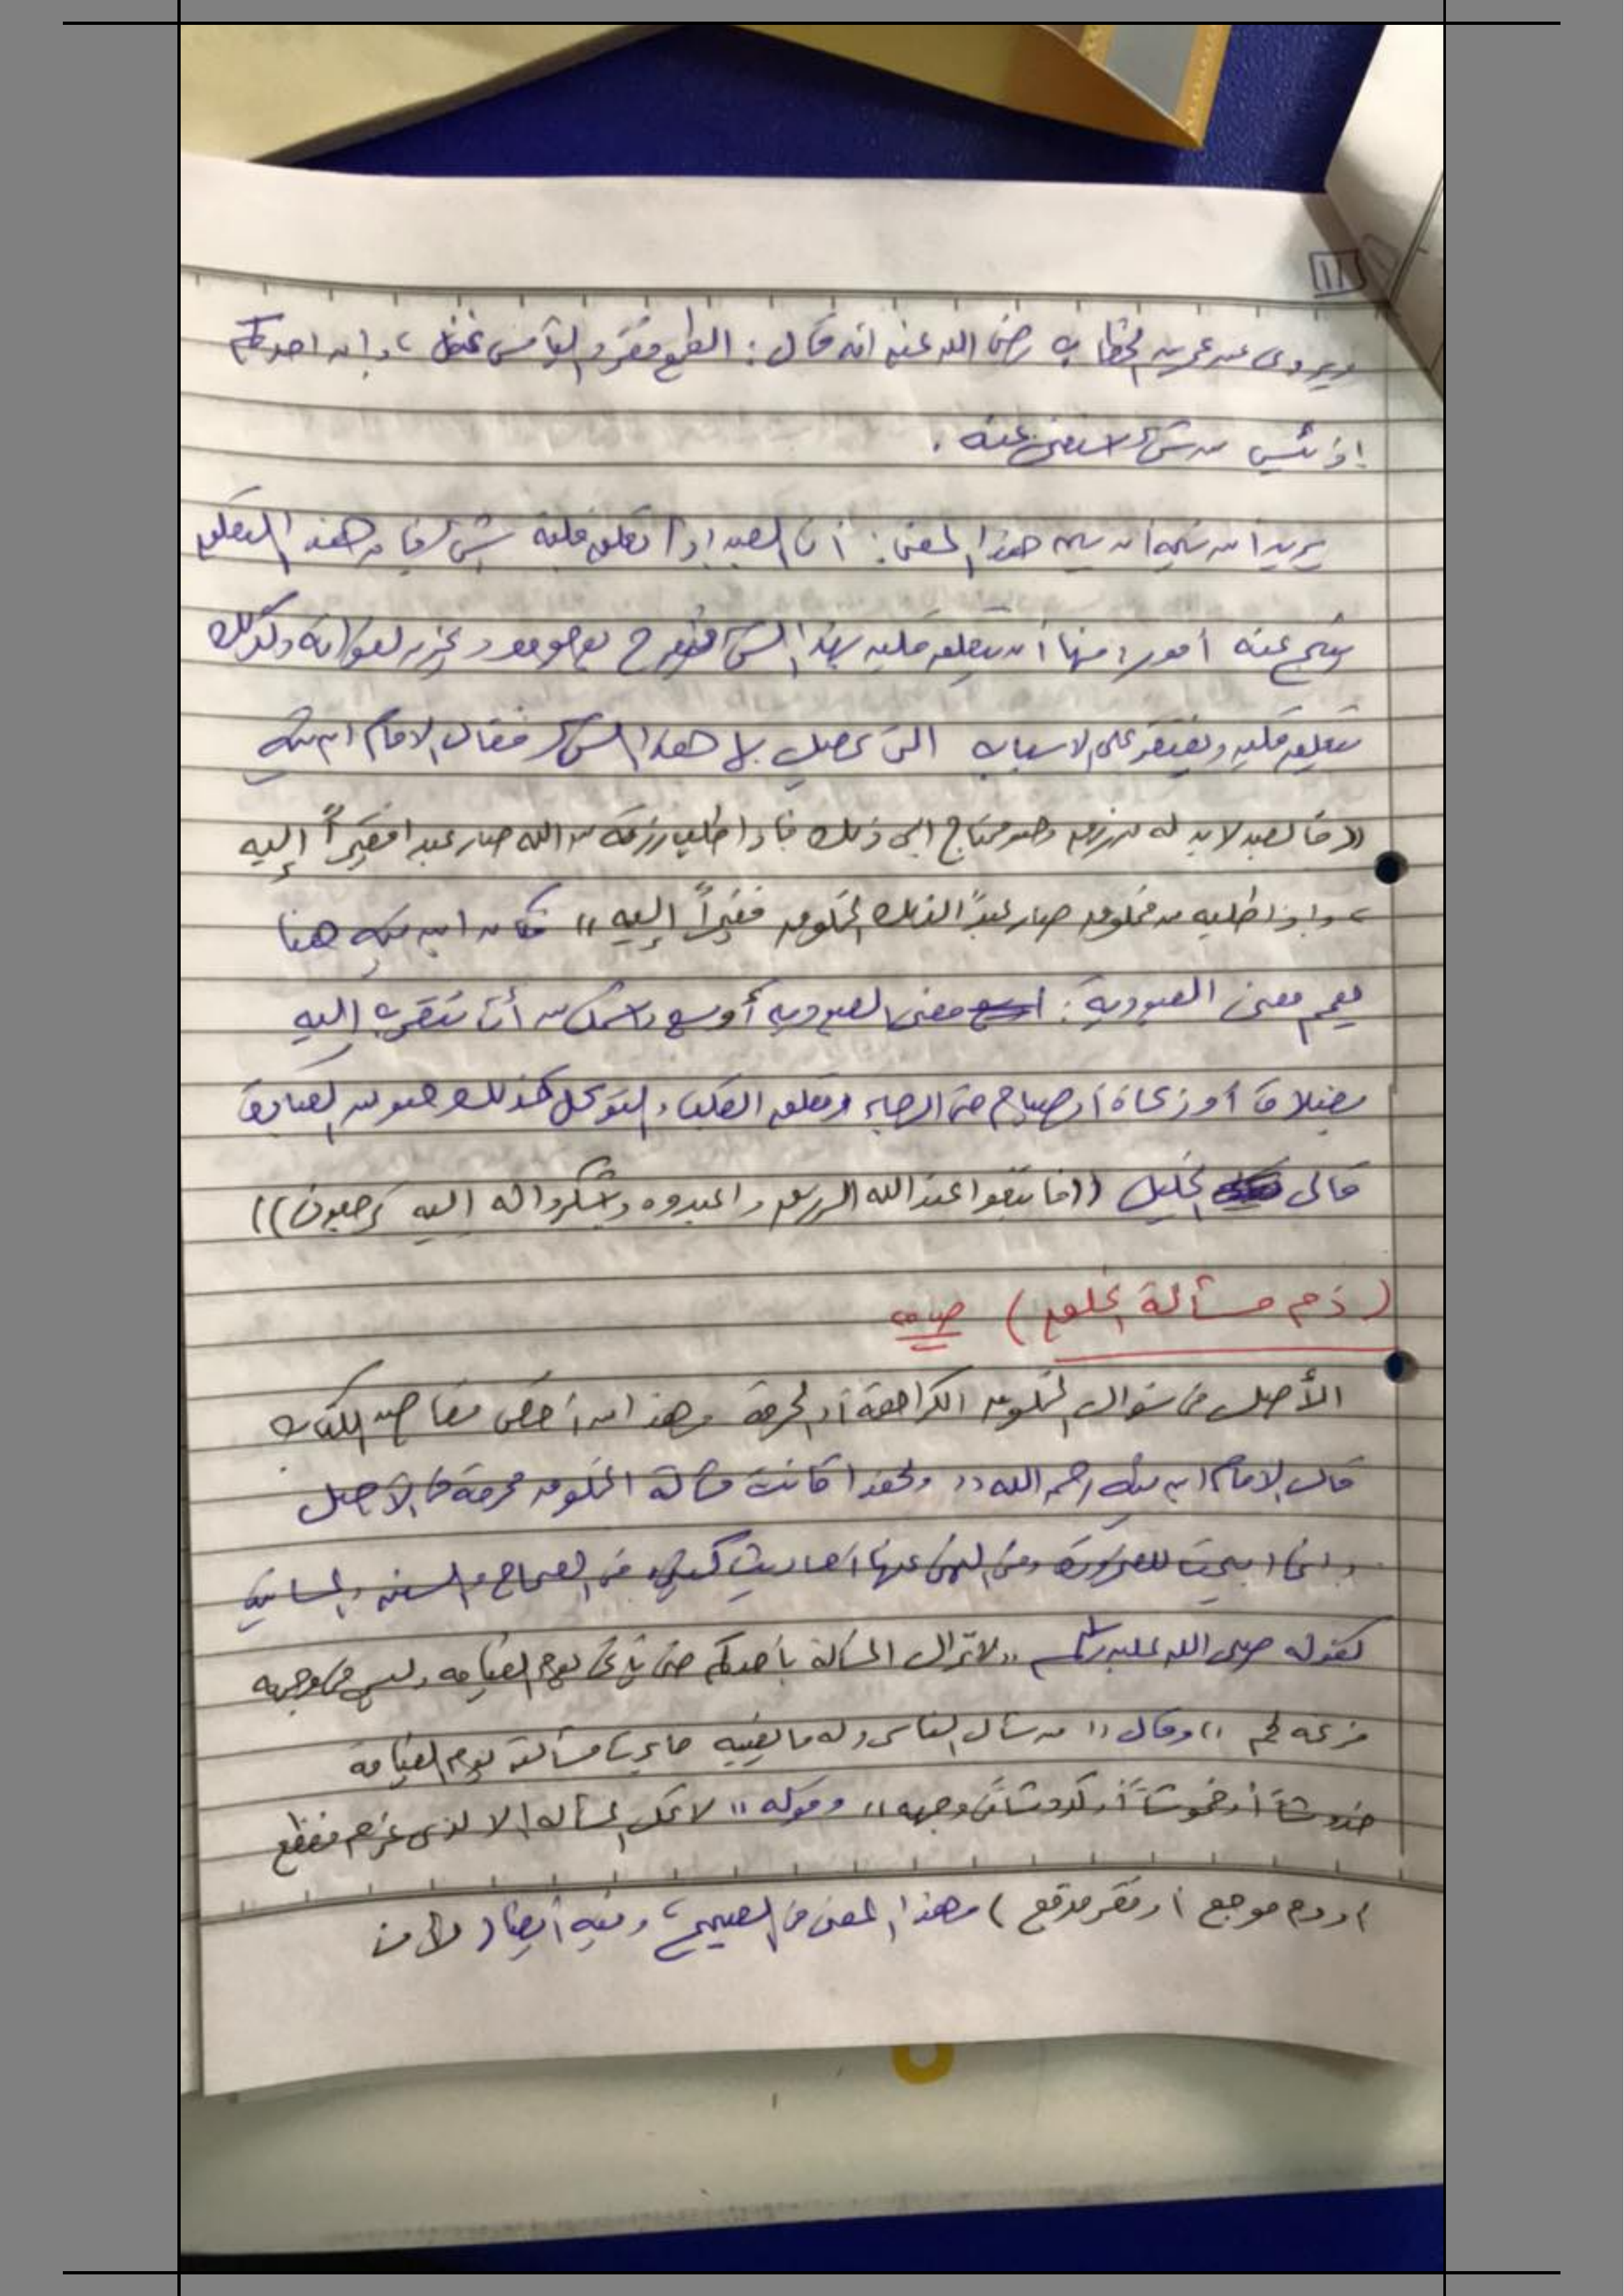 ١١
ويروى عن عمر بن الخطاب رضي الله عنه انه قال : الطمع فقر و اليأس غنى ، وإن احدكم
إذ يئس من شئ استغنى عنه .
يريد ابن تيمية أن يبين هذا المعنى : أن العبد إذا تعلق قلبه بشئ فإن هذا التعلق
ينتج عنه أمور : منها أن يتعلق قلبه بهذا الشئ وكذلك
يتعلق قلبه ويفتقر على الاسباب التي تحصل له هذا الشئ فقال الامام ابن تيمية
(( فالعبد لابد له من رزق وهو محتاج الى ذلك فإذا طلب رزقه من الله صار عبدا فقيراً إليه
، وإذا طلبه من مخلوق صار عبداً لذلك المخلوق فقيراً إليه )) فكان ابن تيمية هنا
يعمم معنى العبودية : معنى العبودية أوسع واشمل من أن تتقرب إليه
بصلاة أو زكاة أو صيام حتى الرجاء وتعلق القلب والتوكل كذلك هو من العبادة
قال الخليل (( فابتغوا عند الله الرزق واعبدوه واشكروا له إليه ترجعون ))
( ذم مسألة الخلق )
الأصل في سؤال المخلوق الكراهة أو الحرمة وهذا من أخص مقاصد الكتاب
قال الامام ابن تيمية رحمه الله (( ولهذا كانت مسألة المخلوق محرمة في الأصل
وإنما ابيحت للضرورة وفي النهي عنها احاديث كثيرة في الصحاح والسنن والمسانيد
كقوله صلى الله عليه وسلم (( لا تزال المسألة بأحدكم حتى يأتي يوم القيامة وليس في وجهه
مزعة لحم )) وقال (( من سأل الناس وله ما يغنيه جاءت مسألته يوم القيامة
خدوشاً أو خموشاً أو كدوشاً في وجهه )) وقوله (( لا تحل المسألة الا لذي غرم مفظع
أو دم موجع أو فقر مدقع ) وهذا المعنى في الصحيح ، وفيه أيضا ( لأن